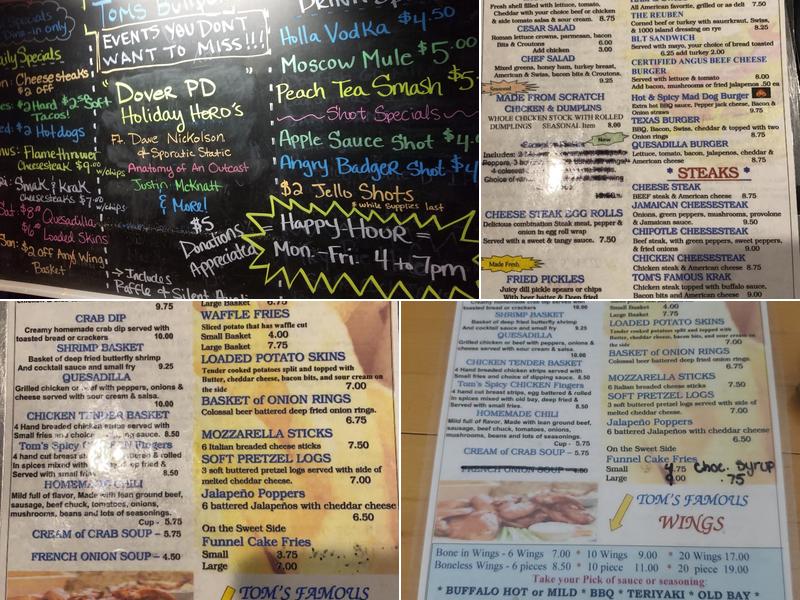 Specials
Dine-in only
Daily Specials
Cheesesteaks
$2 off
2 Hard $2.50 Soft
Tacos!
$2 Hotdogs
Flamethrower
Cheesesteak $9.00 w/chips
Smak & Krak
Cheesesteaks $7. w/chips
Sat: $8.00 Quesadilla
$6.00 Loaded Skins
Sun: $2 off Any Wing
Basket
EVENTS YOU DON'T
WANT TO MISS!!!
"Dover PD
Holiday Hero's
Ft. Dave Nickolson
& Sporatic Static
Anatomy of An Outcast
Justin McKnatt
& More!
$5
Donations
Appreciated
→ Includes
Raffle & Silent
Holla Vodka $4.50
Moscow Mule $5.00
Peach Tea Smash $5
Shot Specials
Apple Sauce Shot $4.
Angry Badger Shot $4
$2 Jello Shots
* while supplies last
= Happy Hour =
Mon.-Fri. 4 to 7pm
Fresh shell filled with lettuce, tomato,
Cheddar with your choice beef or chicken
& side tomato salsa & sour cream. 8.75
CESAR SALAD
Roman lettuce croutons, parmesan, bacon
Bits & Croutons 6.00
Add chicken 3.00
CHEF SALAD
Mixed greens, honey ham, turkey breast,
American & Swiss, bacon bits & Croutons.
9.25
Seasonal
MADE FROM SCRATCH
CHICKEN & DUMPLINS
WHOLE CHICKEN STOCK WITH ROLLED
DUMPLINGS SEASONAL Item 8.00
New
Includes: 2
CHEESE STEAK EGG ROLLS
Delicious combination Steak meat, pepper &
onion in egg roll wrap
Served with a sweet & tangy sauce. 7.50
Made Fresh
FRIED PICKLES
Juicy dill pickle spears or chips
With beer batter & Deep fried
All American favorite, grilled or as deli 7.50
THE REUBEN
Corned beef or turkey with sauerkraut, Swiss,
& 1000 island dressing on rye 8.25
BLT SANDWICH
Served with mayo, your choice of bread toasted
6.25 add turkey 2.00
CERTIFIED ANGUS BEEF CHEESE
BURGER
Served with lettuce & tomato 8.00
Add bacon, mushrooms or fried jalapenos .50 ea
Hot & Spicy Mad Dog Burger
Extra hot BBQ sauce, Pepper jack cheese, Bacon &
Onion straws 9.25
TEXAS BURGER
BBQ, Bacon, Swiss, cheddar & topped with two
Onion rings 8.75
QUESADILLA BURGER
Lettuce, tomato, bacon, jalapenos, cheddar &
American cheese 8.75
* STEAKS *
CHEESE STEAK
BEEF steak & American cheese 8.75
JAMAICAN CHEESESTEAK
Onions, green peppers, mushrooms, provolone
& Jamaican sauce. 9.50
CHIPOTLE CHEESESTEAK
Beef steak, with green peppers, sweet peppers,
& fried onions 9.00
CHICKEN CHEESESTEAK
Chicken steak & American cheese 8.75
TOM'S FAMOUS KRAK
Chicken steak topped with buffalo sauce,
Bacon bits and American cheese 9.00
9.75
CRAB DIP
Creamy homemade crab dip served with
toasted bread or crackers 10.00
SHRIMP BASKET
Basket of deep fried butterfly shrimp
And cocktail sauce and small fry 9.25
QUESADILLA
Grilled chicken or beef with peppers, onions &
cheese served with sour cream & salsa.
10.00
CHICKEN TENDER BASKET
4 Hand breaded chicken strips served with
Small fries and choice of dipping sauce. 8.50
Tom's Spicy CHICKEN Fingers
4 hand cut breast strips, egg battered & rolled
In spices mixed with old bay, deep fried &
Served with small fries. 8.50
HOMEMADE CHILI
Mild full of flavor, Made with lean ground beef,
sausage, beef chuck, tomatoes, onions,
mushrooms, beans and lots of seasonings.
Cup - 5.75
CREAM of CRAB SOUP – 5.75
FRENCH ONION SOUP – 4.50
Large Basket 6.75
WAFFLE FRIES
Sliced potato that has waffle cut
Small Basket 4.00
Large Basket 7.75
LOADED POTATO SKINS
Tender cooked potatoes split and topped with
Butter, cheddar cheese, bacon bits, and sour cream on
the side 7.00
BASKET of ONION RINGS
Colossal beer battered deep fried onion rings.
6.75
MOZZARELLA STICKS
6 Italian breaded cheese sticks 7.50
SOFT PRETZEL LOGS
3 soft buttered pretzel logs served with side of
melted cheddar cheese. 7.00
Jalapeño Poppers
6 battered Jalapeños with cheddar cheese
6.50
On the Sweet Side
Funnel Cake Fries
Small 3.75
Large 7.00
TOM'S FAMOUS
toasted bread or crackers 10.00
SHRIMP BASKET
Basket of deep fried butterfly shrimp
And cocktail sauce and small fry 9.25
QUESADILLA
Grilled chicken or beef with peppers, onions &
cheese served with sour cream & salsa.
10.00
CHICKEN TENDER BASKET
4 Hand breaded chicken strips served with
Small fries and choice of dipping sauce. 8.50
Tom's Spicy CHICKEN Fingers
4 hand cut breast strips, egg battered & rolled
In spices mixed with old bay, deep fried &
Served with small fries. 8.50
HOMEMADE CHILI
Mild full of flavor, Made with lean ground beef,
sausage, beef chuck, tomatoes, onions,
mushrooms, beans and lots of seasonings.
Cup - 5.75
CREAM of CRAB SOUP – 5.75
FRENCH ONION SOUP – 4.50
Small Basket 4.00
Large Basket 7.75
LOADED POTATO SKINS
Tender cooked potatoes split and topped with
Butter, cheddar cheese, bacon bits, and sour cream on
the side 7.00
BASKET of ONION RINGS
Colossal beer battered deep fried onion rings.
6.75
MOZZARELLA STICKS
6 Italian breaded cheese sticks 7.50
SOFT PRETZEL LOGS
3 soft buttered pretzel logs served with side of
melted cheddar cheese. 7.00
Jalapeño Poppers
6 battered Jalapeños with cheddar cheese
6.50
On the Sweet Side
Funnel Cake Fries
Small 4.75 Choc. Syrup
Large .00 .75
TOM'S FAMOUS
WINGS
Bone in Wings - 6 Wings 7.00 * 10 Wings 9.00 * 20 Wings 17.00
Boneless Wings - 6 pieces 8.50 * 10 piece 11.00 * 20 piece 19.00
Take your Pick of sauce or seasoning:
* BUFFALO HOT or MILD * BBQ * TERIYAKI * OLD BAY *